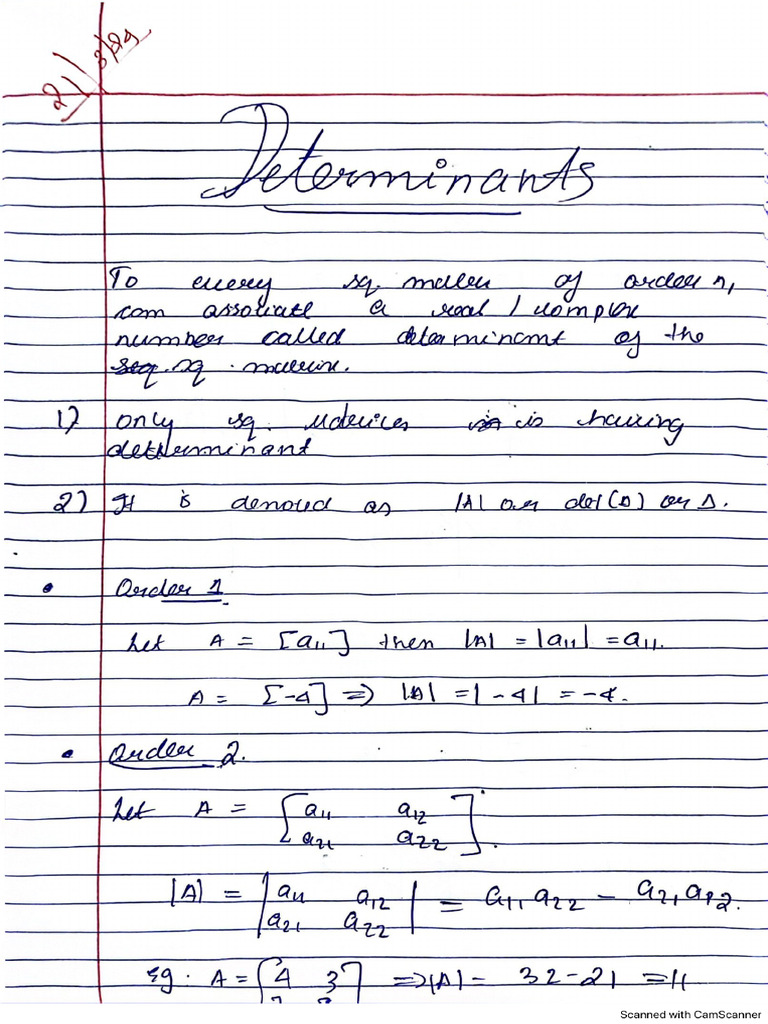 2/3/24
Determinants
To every sq. matrix of order n,
can associate a real / complex
number called determinant of the
sq. matrix.
1) only sq. Matrices is having
determinant
2) It is denoted as |A| or det(A) or Δ.
• Order 1
Let A = [a₁₁] then |A| = |a₁₁| = a₁₁.
A = [-4] => |A| = |-4| = -4.
• Order 2.
Let A = [a₁₁ a₁₂
a₂₁ a₂₂].
|A| = |a₁₁ a₁₂| = a₁₁ a₂₂ - a₂₁ a₁₂.
|a₂₁ a₂₂|
eg. A = [4 3] => |A| = 32-21 = 11
Scanned with CamScanner